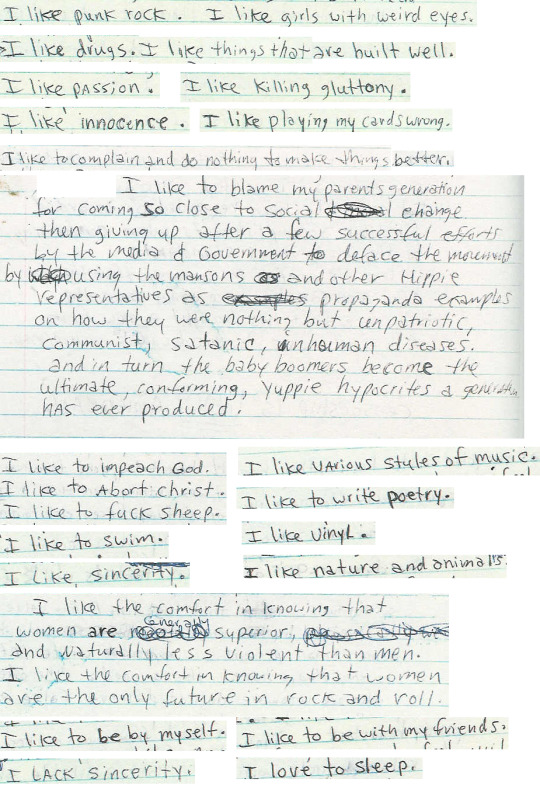 I like punk rock. I like girls with weird eyes.
I like drugs. I like things that are built well.
I like passion. I like killing gluttony.
I like innocence. I like playing my cards wrong.
I like to complain and do nothing to make things better.
I like to blame my parents generation
for coming so close to social change
then giving up after a few successful efforts
by the media & Government to deface the movement
by using the mansons and other Hippie
representatives as propaganda examples
on how they were nothing but unpatriotic,
communist, satanic, inhuman diseases.
and in turn the baby boomers become the
ultimate, conforming, yuppie hypocrites a generation
has ever produced.
I like to impeach God. I like various styles of music.
I like to Abort christ. I like to write poetry.
I like to fuck sheep.
I like to swim. I like vinyl.
I like sincerity. I like nature and animals.
I like the comfort in knowing that
women are Generally superior,
and naturally less violent than men.
I like the comfort in knowing that women
are the only future in rock and roll.
I like to be by myself. I like to be with my friends.
I LACK sincerity. I love to sleep.